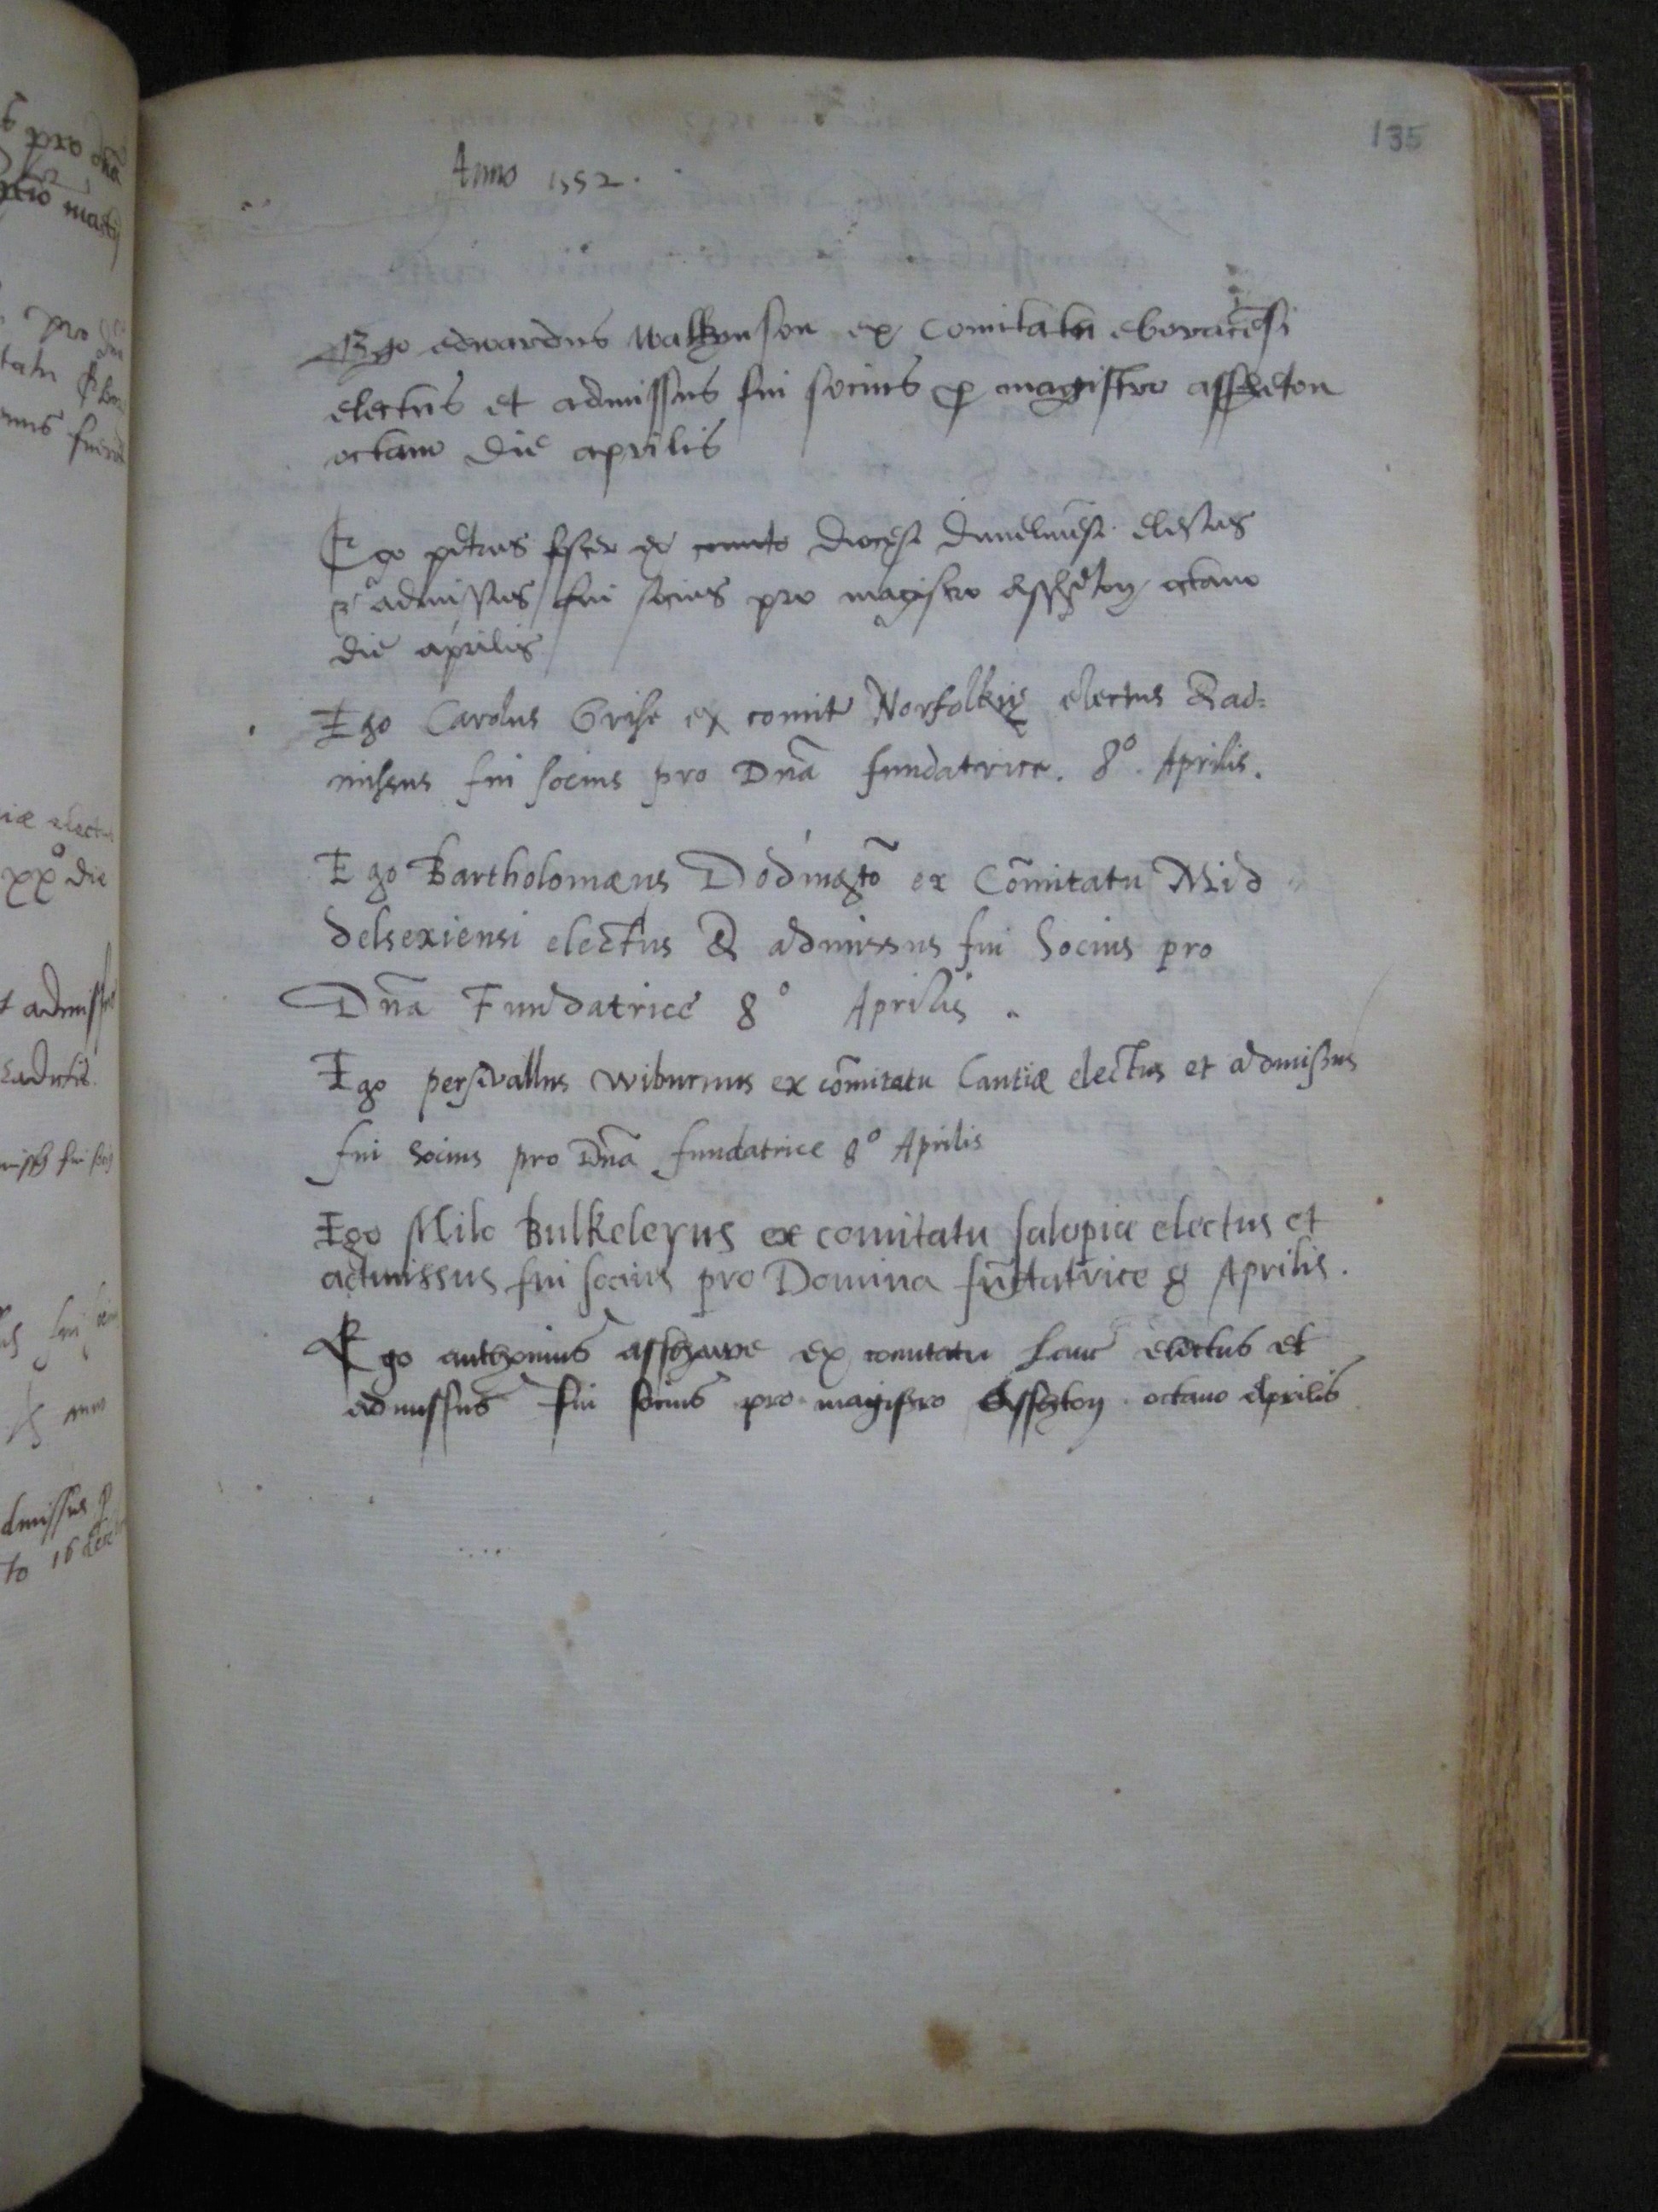 135
Anno 1552.
Ego edwardus walkynson ex Comitatu eboracēsi
electus et admissus fui socius ꝓ magistro assheton
octavo die aprilis
Ego petrus ex comito diocesi dunelmēsi electus
et admissus fui socius pro magistro Assheton octavo
die aprilis
Ego Carolus Grise ex comit Norfolkię electus & ad=
missus fui socius pro Dnā fundatrice. 8° Aprilis.
Ego Bartholomæus Dodingtō ex Cōmitatu Mid
delsexiensi electus & admissus fui Socius pro
Dnā Fundatrice 8° Aprilis.
Ego persivallus wiburnus ex cōmitatu Cantiæ electus et admissus
fui Socius pro Dnā fundatrice 8° Aprilis
Ego Milo Bulkeleyus ex comitatu salopiæ electus et
admissus fui socius pro Domina fūdatrice 8 Aprilis.
Ego anthonius asshawe ex comitatu Lanc electus et
admissus fui socius pro magistro Asshton octavo Aprilis